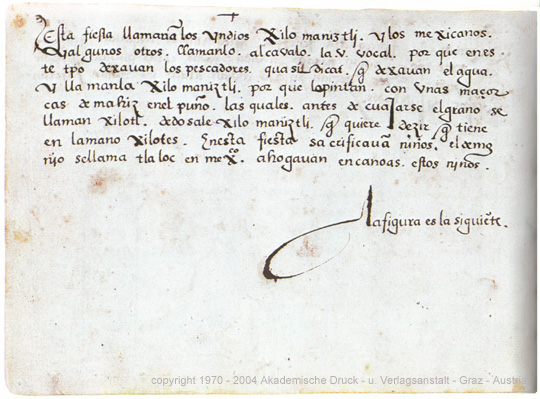 ✝
Esta fiesta llamavã los yndios Xilo maniztli. y los mexicanos.
y algunos otros. llamanlo. alcavalo. la v. vocal. por que en es
te tp̃o dexavan los pescadores. quasi dicat. q̃ dexavan el agua.
y llamanla Xilo maniztli. por que lo pintan. con unas maçor
cas de mahiz en el puño. las quales. antes de cuajarse el grano se
llaman Xilotl. de do sale Xilo maniztli. q̃ quiere dezir q̃ tiene
en la mano xilotes. En esta fiesta sacrificavã niños. el demo
nio se llama tlaloc en mexᶜᵒ. ahogavan en canoas. estos niños.
la figura es la siguiẽte.
copyright 1970 - 2004 Akademische Druck - u. Verlagsanstalt - Graz - Austria